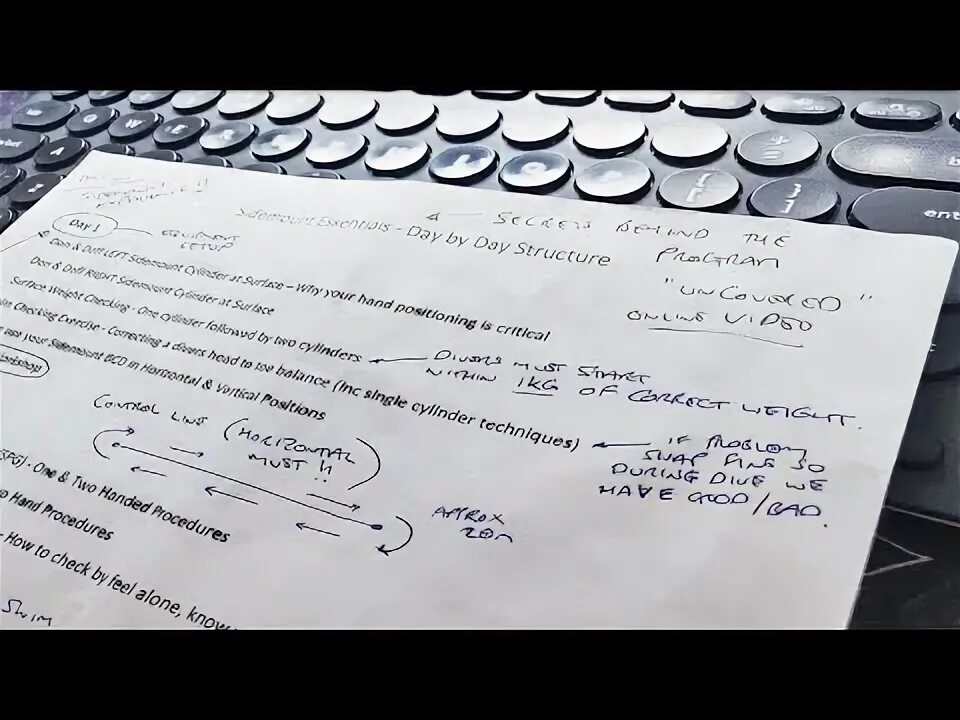 Sidemount Essentials - Day by Day Structure
← SECRETS BEHIND THE
PROGRAM
"UNCOVERED"
ONLINE VIDEO
Day 1
EQUIPMENT
SETUP
Don & Doff LEFT Sidemount Cylinder at Surface – Why your hand positioning is critical
Don & Doff RIGHT Sidemount Cylinder at Surface
Surface Weight Checking - One cylinder followed by two cylinders
DIVERS MUST START
WITHIN 1KG OF CORRECT WEIGHT.
Checking Exercise - Correcting a divers head to toe balance (Inc single cylinder techniques)
IF PROBLEM,
SWAP FINS SO
DURING DIVE WE
HAVE GOOD/BAD.
use your Sidemount BCD in Horizontal & Vertical Positions
CONTROL LINE (HORIZONTAL
MUST !!)
APPROX
20m
(SPG) - One & Two Handed Procedures
Hand Procedures
- How to check by feel alone, know
SWIM